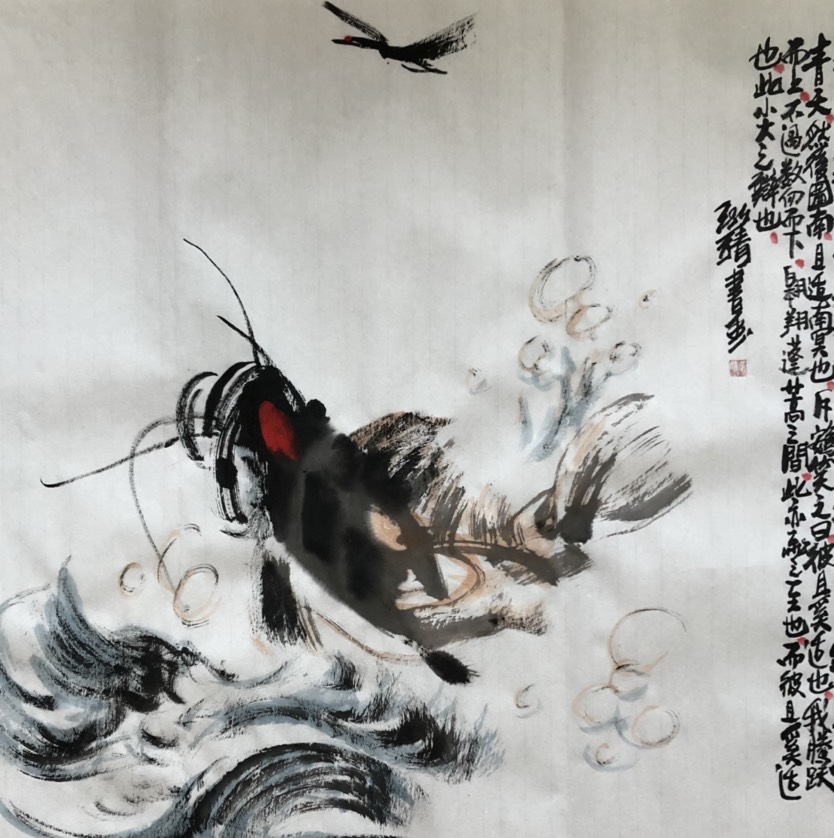 青天然後圖南且适南冥也斥鷃笑之曰彼且奚适也我騰跃
而上不過数仞而下翱翔蓬蒿之間此亦飛之至也而彼且奚适
也此小大之辯也
書画